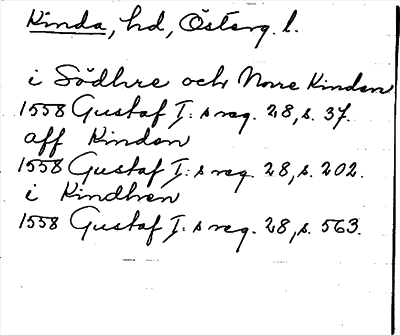 Kinda, hd, Österg. l.
i Södhre och Norre Kinden
1558 Gustaf I:s reg. 28, s. 37.
aff Kinden
1558 Gustaf I:s reg. 28, s. 202.
i Kindhen
1558 Gustaf I:s reg. 28, s. 563.